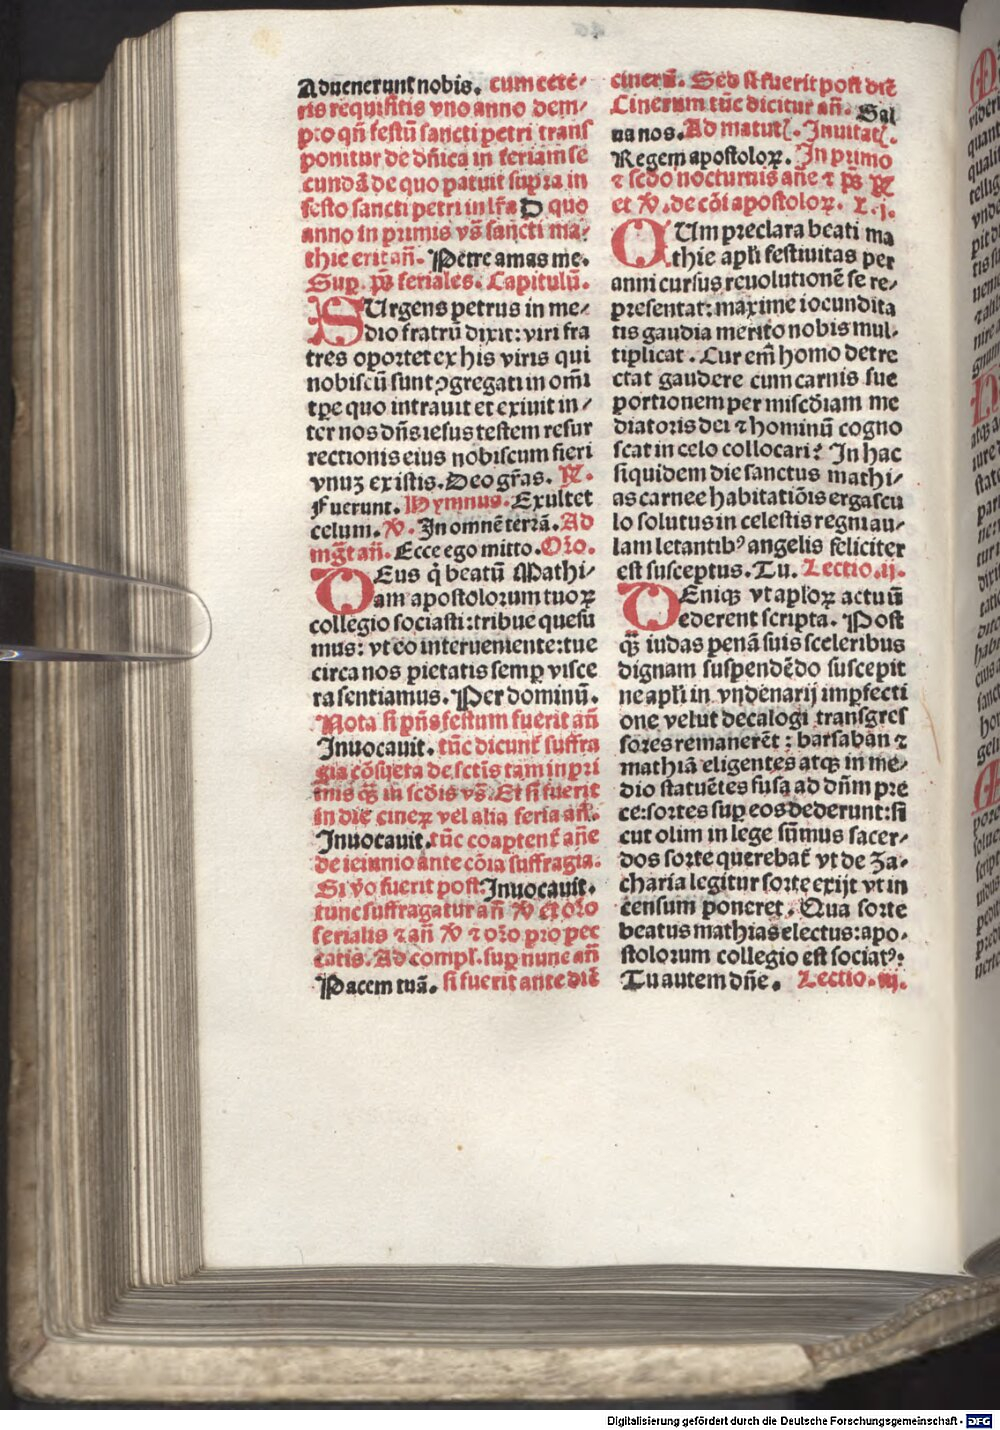 Aduenerunt nobis. cum cete⸗
ris requisitis vno anno dem⸗
pto qn̄ festū sancti petri trans
ponitur de dn̄ica in feriam se
cundā de quo patuit supra in
festo sancti petri in lr̄a D quo
anno in primis vs̄ sancti ma⸗
thie erit an̄. Petre amas me.
Suꝑ. ps̄ feriales. Capitulū.
SUrgens petrus in me⸗
dio fratrū dixit: viri fra
tres oportet ex his viris qui
nobiscū sunt ꝯgregati in om̄i
tꝑe quo intrauit et exiuit in⸗
ter nos dn̄s iesus testem resur
rectionis eius nobiscum fieri
vnuꝫ ex istis. Deo gr̄as. R̄.
Fuerunt. Hymnus. Exultet
celum. V̄. In omnē terrā. Ad
mḡt an̄. Ecce ego mitto. Oꝛo.
DEus q̇ beatū Mathi⸗
am apostolorum tuoꝝ
collegio sociasti: tribue quesu
mus: vt eo interueniente: tue
circa nos pietatis semꝑ visce
ra sentiamus. Per dominū.
Nota si pn̄s festum fuerit an̄
Inuocauit. tūc dicunt̄ suffra
gia cōsueta de sctīs tam in pri
mis qꝫ in scd̄is vs̄. Et si fuerit
in die cineꝝ vel alia feria an̄.
Inuocauit. tūc coaptent̄ an̄e
de ieiunio ante cōia suffragia.
Si v̄o fuerit post Inuocauit.
tunc suffragatur an̄ V̄ et oꝛo
ferialis ⁊ an̄ V̄ ⁊ oꝛo pro pec
catis. Ad compl. suꝑ nunc an̄
Pacem tuā. si fuerit ante diē
cinerū. Sed si fuerit post diē
Cinerum tūc dicitur an̄. Sal
ua nos. Ad matut̄. Inuitat̄.
Regem apostoloꝝ. In primo
⁊ scd̄o nocturnis an̄e ⁊ ps̄ R̄
et V̄. de cōi apostoloꝝ. L. j.
CUm preclara beati ma
thie apl̄i festiuitas per
anni cursus reuolutionē se re⸗
presentat: maxime iocundita
tis gaudia merito nobis mul⸗
tiplicat. Cur em̄ homo detre
ctat gaudere cum carnis sue
portionem per misc̄diam me
diatoris dei ⁊ hominū cogno
scat in celo collocari? In hac
siquidem die sanctus mathi⸗
as carnee habitatiōis ergastu
lo solutus in celestis regni au⸗
lam letantibꝰ angelis feliciter
est susceptus. Tu. Lectio. ij.
DEniqꝫ vt apl̄oꝝ actuū
ederent scripta. Post
qꝫ iudas penā suis sceleribus
dignam suspendēdo suscepit
ne apl̄i in vndenarij imꝑfecti
one velut decalogi transgres
sores remanerēt: barsabān ⁊
mathiā eligentes atqꝫ in me⸗
dio statuētes fusa ad dn̄m pre
ce: sortes suꝑ eos dederunt: si
cut olim in lege sūmus sacer⸗
dos sorte querebat̄ vt de Za⸗
charia legitur sorte exijt vt in
censum poneret. Qua sorte
beatus mathias electus: apo⸗
stolorum collegio est sociatꝰ:
Tu autem dn̄e. Lectio. iij.
Digitalisierung gefördert durch die Deutsche Forschungsgemeinschaft - DFG